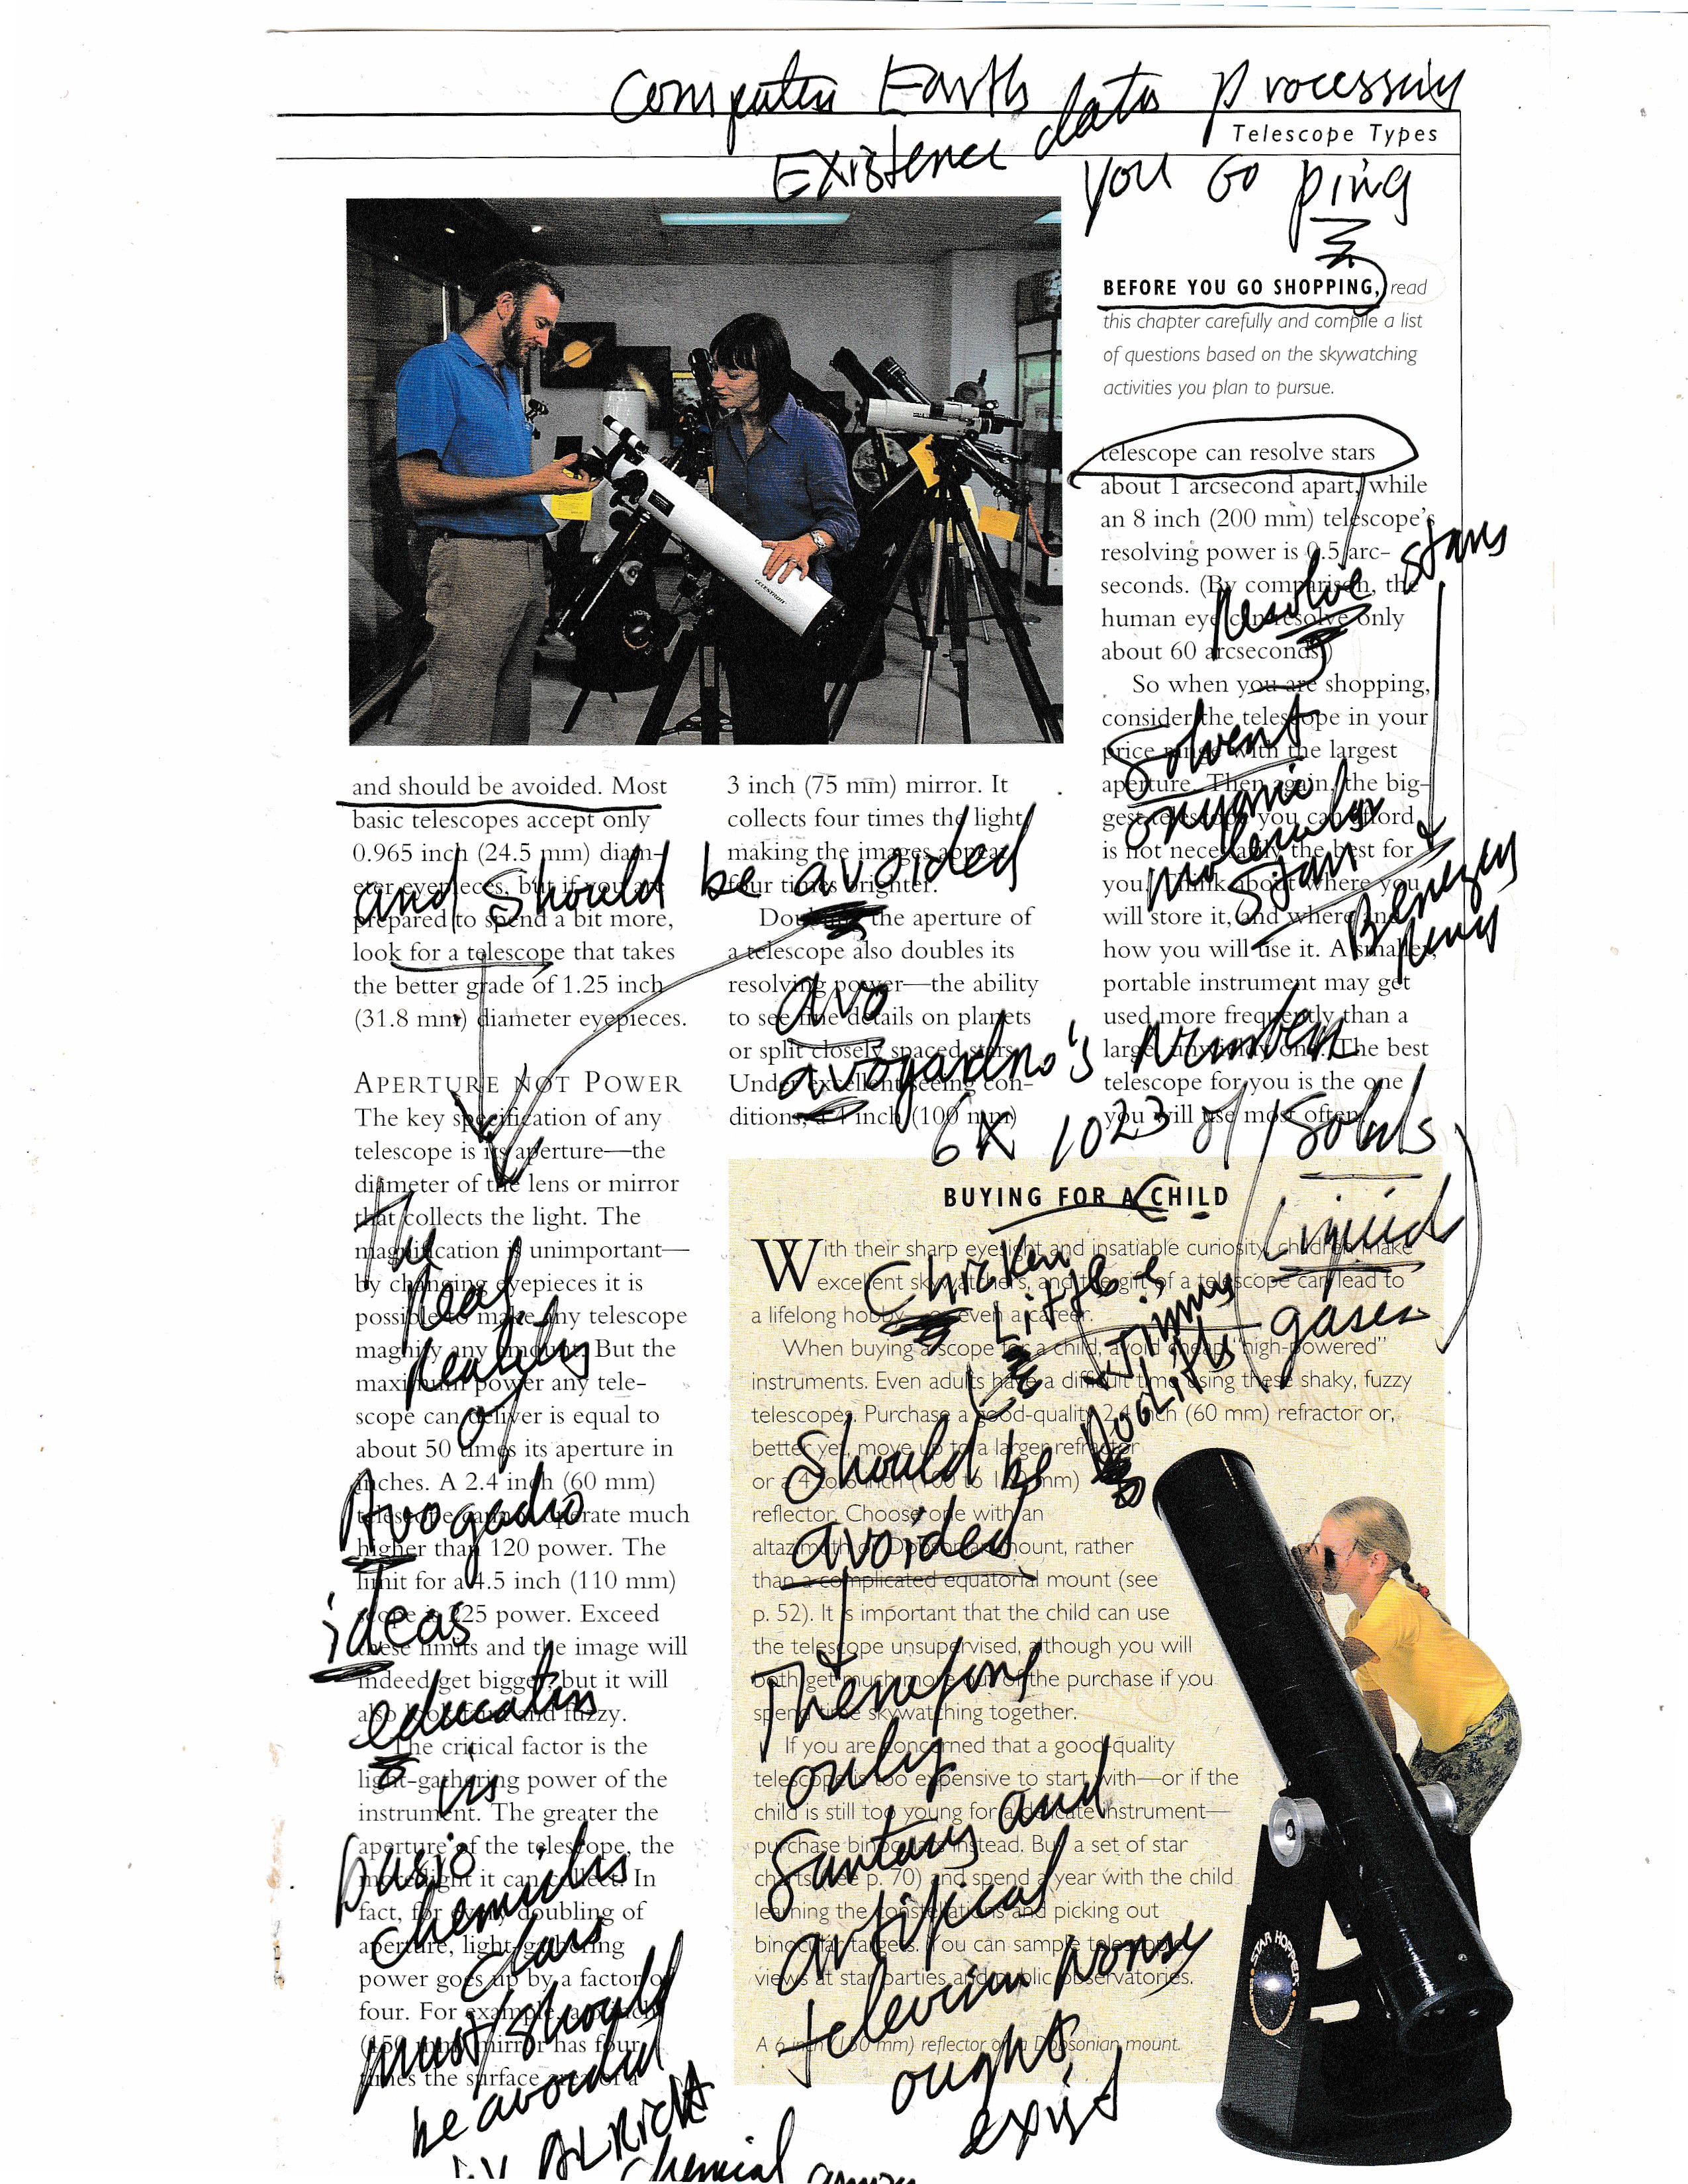 Computer Earth data processing
Telescope Types
Existence
you Go ping
BEFORE YOU GO SHOPPING, read
this chapter carefully and compile a list
of questions based on the skywatching
activities you plan to pursue.
telescope can resolve stars
about 1 arcsecond apart, while
an 8 inch (200 mm) telescope's
resolving power is 0.5 arc-
seconds. (By comparison, the
human eye can resolve only
about 60 arcseconds.)
So when you are shopping,
consider the telescope in your
price range with the largest
aperture. Then again, the big-
gest telescope you can afford
is not necessarily the best for
you. Think about where you
will store it, and where and
how you will use it. A smaller,
portable instrument may get
used more frequently than a
large, unwieldy one. The best
telescope for you is the one
you will use most often.
resolve stars
Solvent
organic
molecular
Stars
Benezus
and should be avoided. Most
basic telescopes accept only
0.965 inch (24.5 mm) diam-
eter eyepieces, but if you are
prepared to spend a bit more,
look for a telescope that takes
the better grade of 1.25 inch
(31.8 mm) diameter eyepieces.
APERTURE NOT POWER
The key specification of any
telescope is its aperture—the
diameter of the lens or mirror
that collects the light. The
magnification is unimportant—
by changing eyepieces it is
possible to make any telescope
magnify any amount. But the
maximum power any tele-
scope can deliver is equal to
about 50 times its aperture in
inches. A 2.4 inch (60 mm)
telescope cannot operate much
higher than 120 power. The
limit for a 4.5 inch (110 mm)
scope is 225 power. Exceed
these limits and the image will
indeed get bigger, but it will
also look faint and fuzzy.
The critical factor is the
light-gathering power of the
instrument. The greater the
aperture of the telescope, the
more light it can collect. In
fact, for every doubling of
aperture, light-gathering
power goes up by a factor of
four. For example, a 6 inch
(150 mm) mirror has four
times the surface area of a
3 inch (75 mm) mirror. It
collects four times the light,
making the images appear
four times brighter.
Doubling the aperture of
a telescope also doubles its
resolving power—the ability
to see fine details on planets
or split closely spaced stars.
Under excellent seeing con-
ditions, a 4 inch (100 mm)
and should be avoided
avo
avogardno's Number
6X 1023 of Solids
Liquid
gases
The
Real
Reality
of
Avogadro
ideas
education
is
basic
chemicals
class
must/should
be avoided
by ALRICHT
chemical
BUYING FOR A CHILD
With their sharp eyesight and insatiable curiosity, children make
excellent skywatchers, and the gift of a telescope can lead to
a lifelong hobby—or even a career.
When buying a scope for a child, avoid cheap, "high-powered"
instruments. Even adults have a difficult time using these shaky, fuzzy
telescopes. Purchase a good-quality 2.4 inch (60 mm) refractor or,
better yet, move up to a larger refractor
or a 4 to 6 inch (100 to 150 mm)
reflector. Choose one with an
altazimuth or Dobsonian mount, rather
than a complicated equatorial mount (see
p. 52). It is important that the child can use
the telescope unsupervised, although you will
both get much more out of the purchase if you
spend time skywatching together.
If you are concerned that a good-quality
telescope is too expensive to start with—or if the
child is still too young for a delicate instrument—
purchase binoculars instead. Buy a set of star
charts (see p. 70) and spend a year with the child
learning the constellations and picking out
binocular targets. You can sample telescopic
views at star parties and public observatories.
A 6 inch (150 mm) reflector on a Dobsonian mount.
Chicken
Little
Jimmy
Should be
avoided
Therefore
only
Santacy and
artifical
ought
exist
CELESTRON
STAR HOPPER